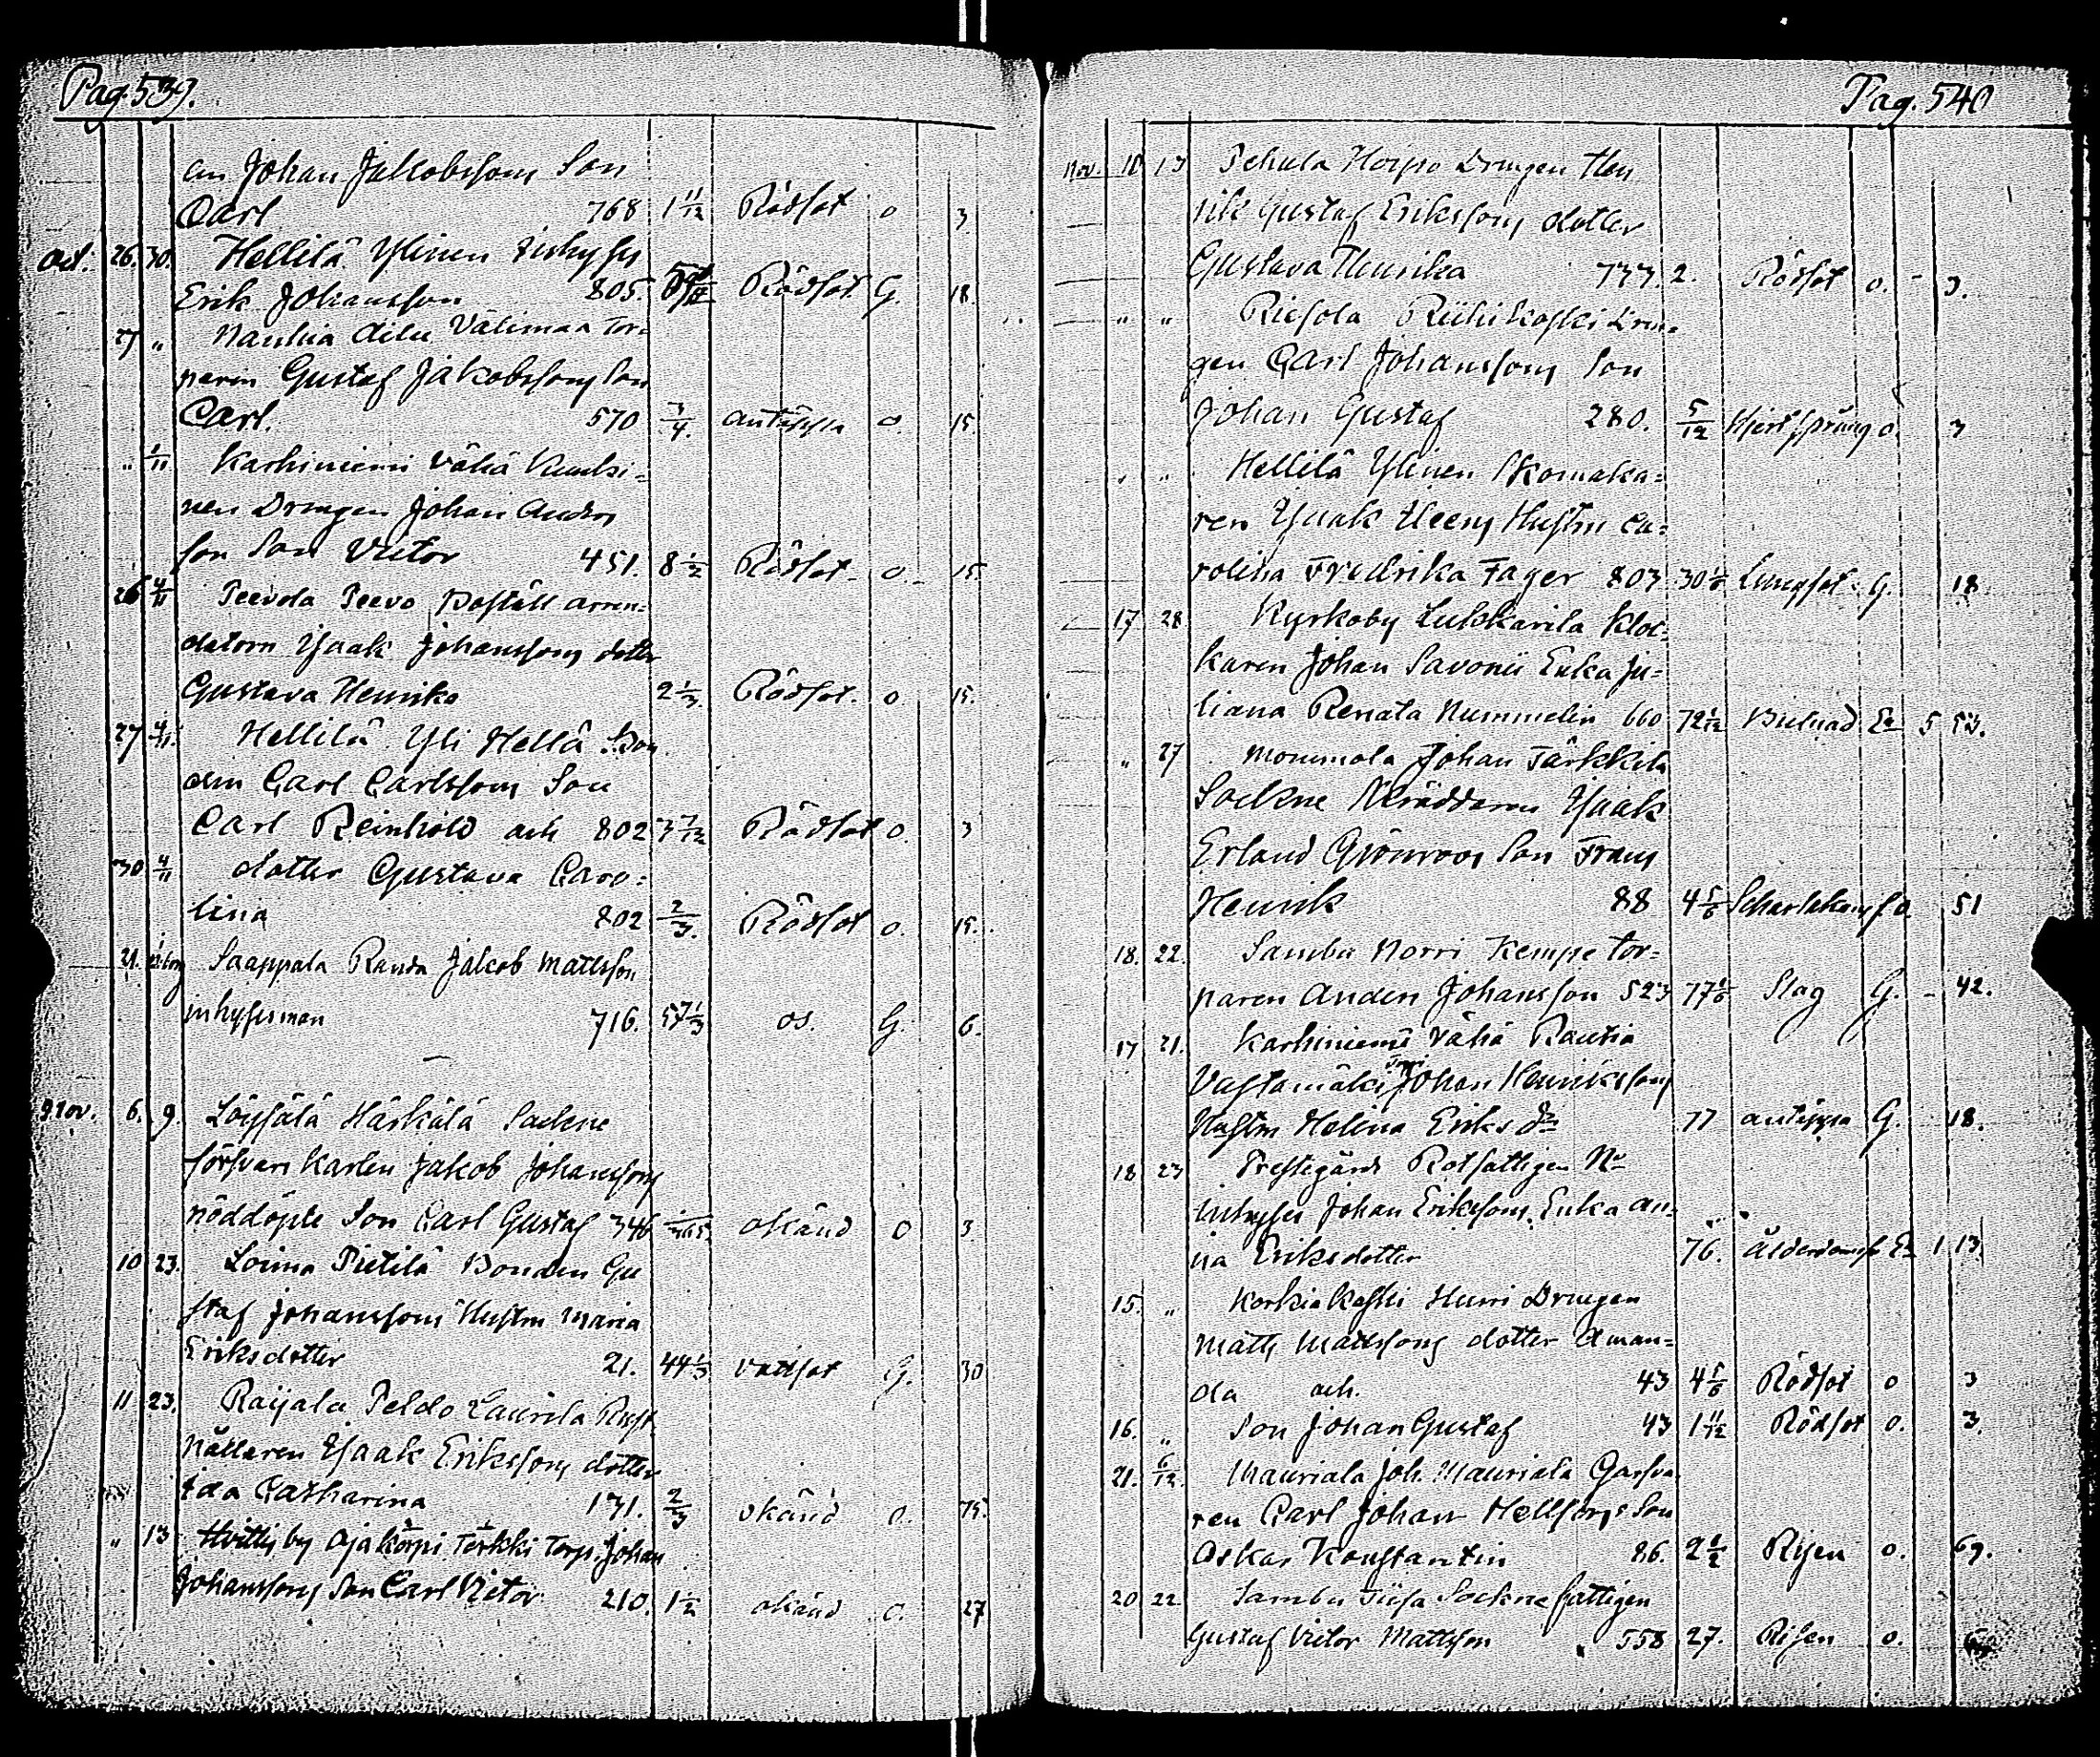 Pag. 539.
an Johan Jakobssons Son
Carl 768 1 11/12 Rödsot o 3
Oct. 26. 30. Hellilä Ylinen Inhyses
Erik Johansson 805. Rödsot G. 18.
27 „ Nanhia Välimaa Tor-
paren Gustaf Jakobssons Son
Carl. 570 3/4. o. 15.
„ 1/11 Karhiniemi Vähä
nen Drengen Johan Anders
son Son Victor 451. 8 1/2 Rödsot o. 15.
26 4/11 Peevola Peevo Boställ arren-
datorn Isaak Johanssons dotter
Gustava Henrika 2 1/3. Rödsot. o. 15.
27 4/11. Hellilä Yli Hellä Bon
den Carl Carlssons Son
Carl Reinhold och 802 3 7/12 Rödsot o. 3
30 4/11 dotter Gustava Caro-
lina 802 2/3. Rödsot o. 15.
21. Saappala Randa Jakob Mattsson
inhysesman 716. 57 1/3 os. G. 6.
Nov. 6. 9. Löysälä Härkälä Sockne
försvars Karlen Jakob Johanssons
nöddöpte Son Carl Gustaf 346 okänd o 3
10 23. Loima Pietilä Bonden Gu
staf Johanssons Hustru Maria
Eriksdotter 21. 44 1/3 vattsot G. 30
11 23. Raijala Peldo Laurila Rust
hållaren Isaak Erikssons dotter
Ida Catharina 131. 2/3 okänd o. 75.
„ 13 Hvittis by Ojakorpi Torp. Johan
Johanssons Son Carl Victor 210. 1 1/2 okänd o. 27
Pag. 540
Nov. 18 13 Pehula Hoipo Drengen Hen
rik Gustaf Erikssons dotter
Gustava Henrika 733. 2. Rödsot o. - 3.
„ „ Riesola Riihikoski Dren-
gen Carl Johanssons Son
Johan Gustaf 280. 5/12 o. 3
„ „ Hellilä Ylinen Skomaka-
ren Isaak Hustru Ca-
rolina Fredrika Fager 803 30 1/6 Lungsot G. 18
17 28 Kyrkoby Lukkarila Kloc-
karen Johan Savonii Enka Ju-
liana Renata Nummelin 660 72 1/12 En 5 53.
„ 27 Mommola Johan Tärkkilä
Sockne Skräddaren Isaak
Erland Grönroos Son Frans
Henrik 88 4 5/6 o. 51
18. 22. Sambu Norri Kempe Tor-
paren Anders Johansson 523 77 1/6 Slag G. - 42.
17 21. Karhiniemi Vähä Rautia
Vastamäki Torp. Johan Henrikssons
Hustru Helena Eriks dr 77 G. 18.
18 23 Prestegård Rotfattigen
Inhyses Johan Erikssons Enka An-
na Eriksdotter 76. Ålderdoms En 1 13.
15. „ Korkiakoski Hurri Drengen
Matts Mattssons dotter Aman-
da och. 43 4 5/6 Rödsot o 3
16. „ Son Johan Gustaf 43 1 11/12 Rödsot o. 3.
21. 6/12. Mauriala Joh. Mauriala Garfva
ren Carl Johan Hellfors Son
Oskar Konstantin 86. 2 1/2 Risen o. 69.
20 22 Sambu Tiisa Sockne fattigen
Gustaf Victor Mattsson 558 27. Risen o.